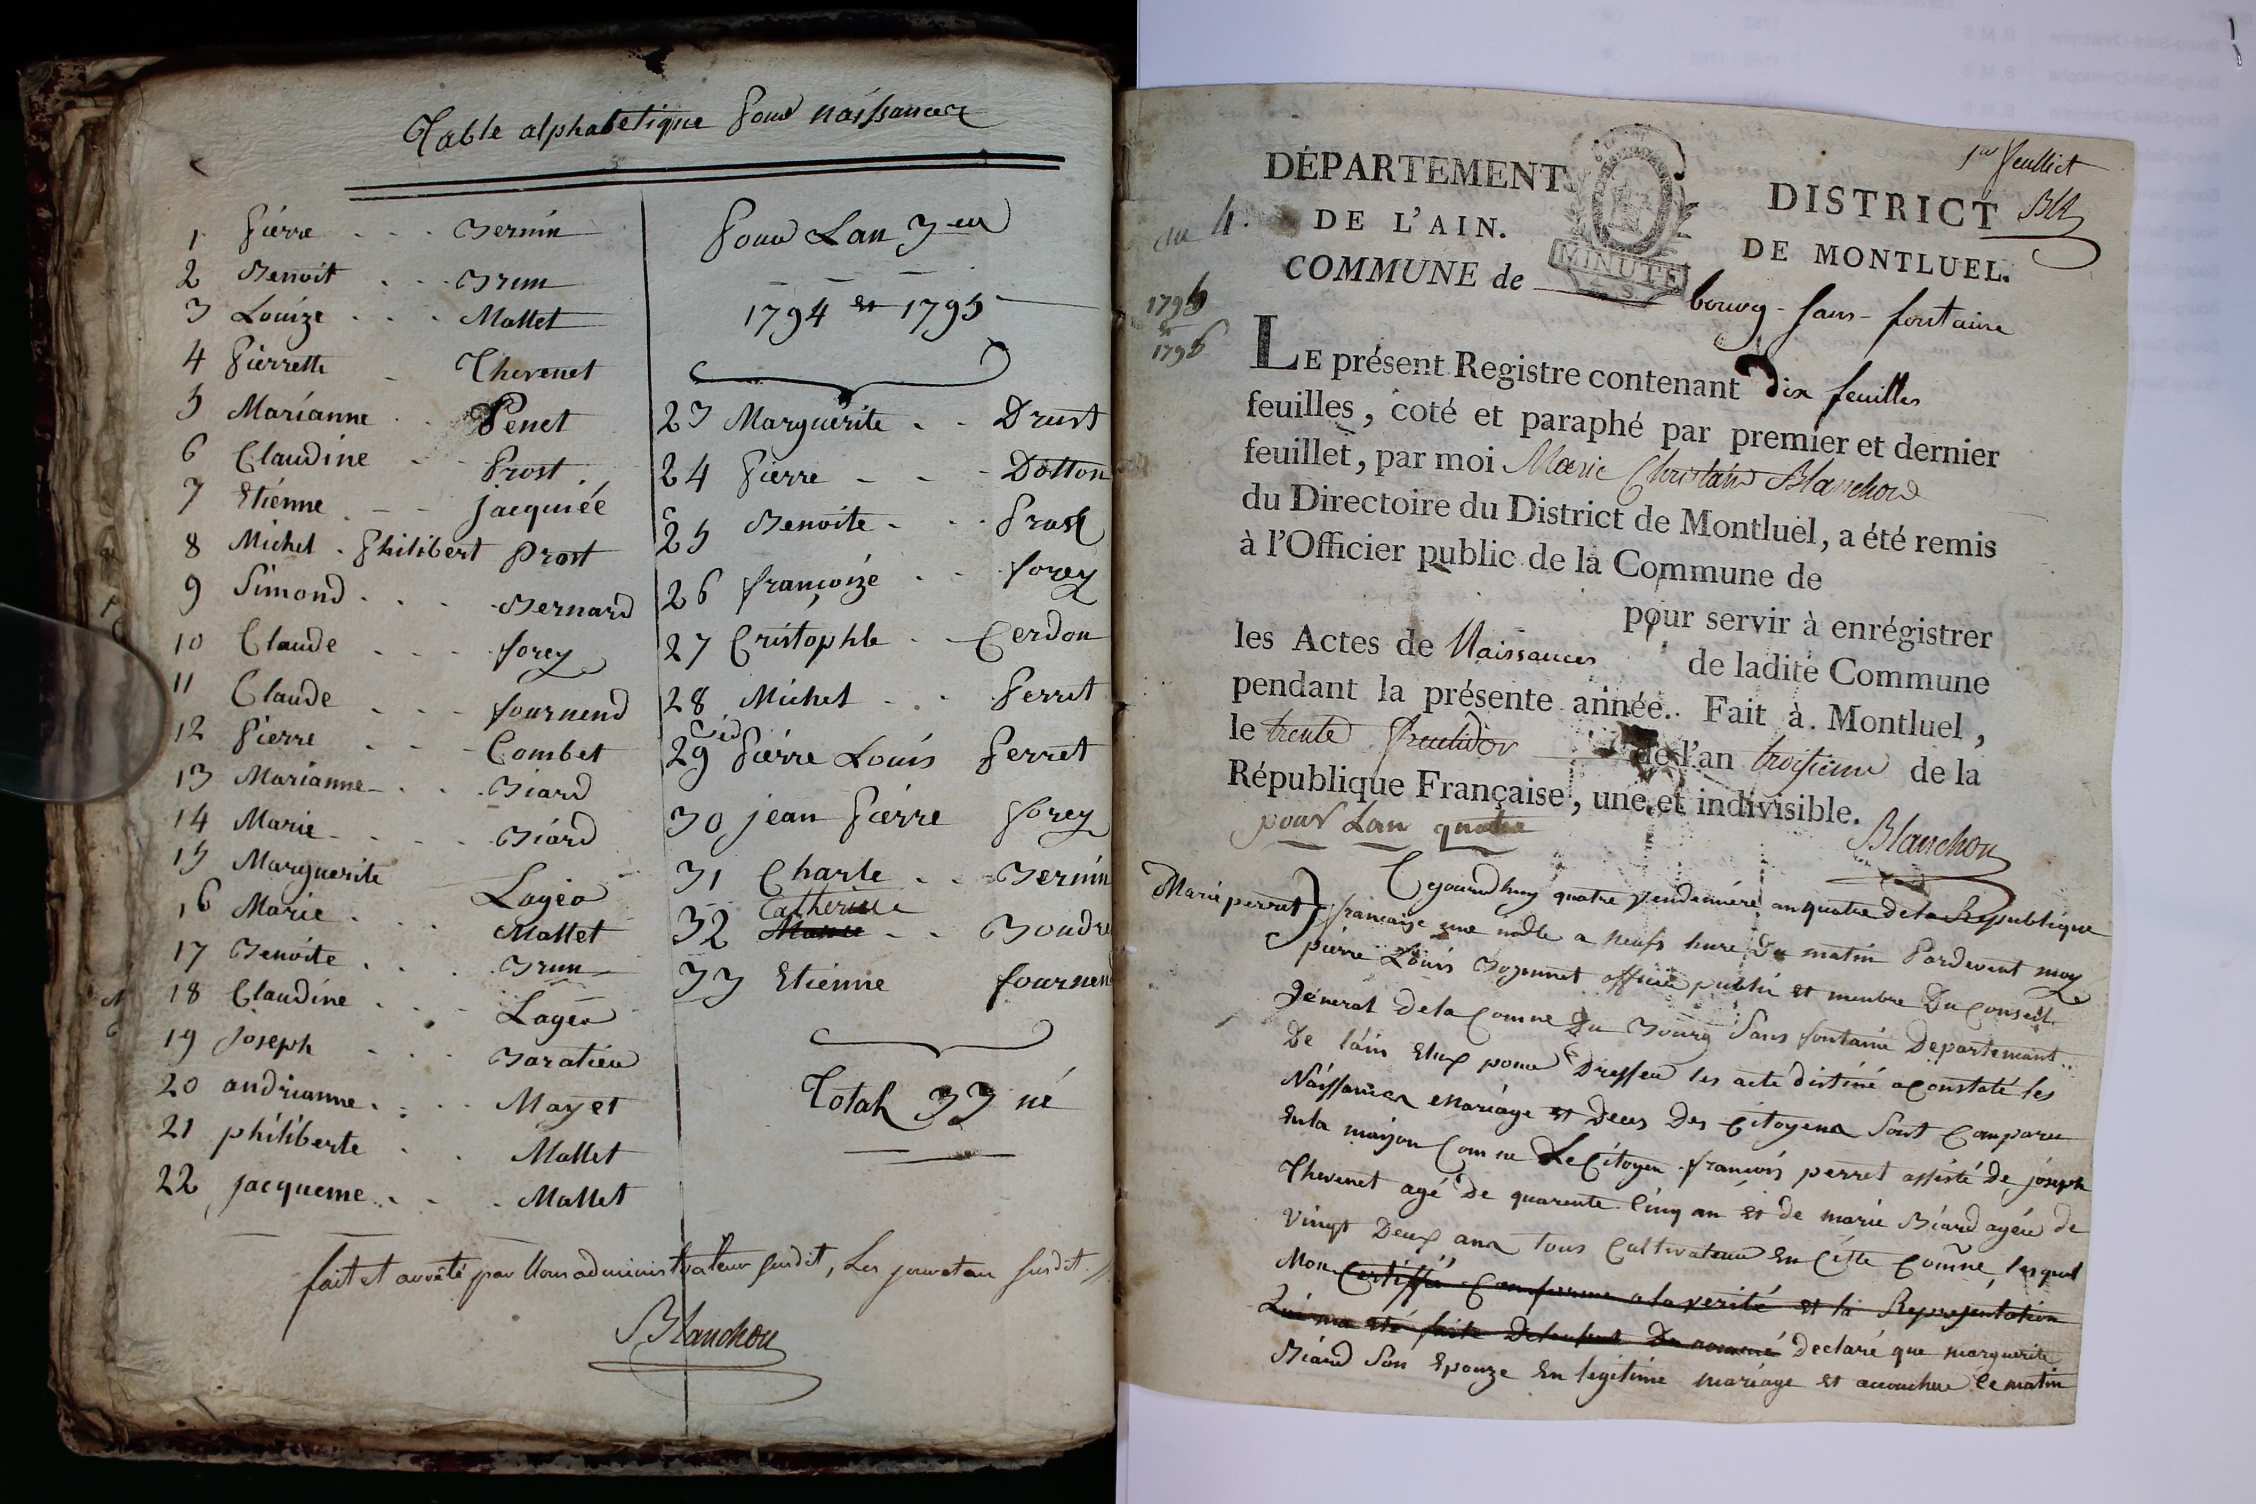 Table alphabetique pour naissances
1 Pierre Bernin
2 Benoit Brun
3 Louize Mallet
4 Pierrette Thevenet
5 Marianne Penet
6 Claudine Prost
7 Etiénne jacquiéé
8 Michel Philibert Prost
9 Simond Bernard
10 Claude forey
11 Claude fournend
12 Pierre Combet
13 Marianne Biard
14 Marie Biard
15 Marguerite Lager
16 Marie Mallet
17 Benoite Brun
18 Claudine Lager
19 joseph Baratier
20 andrianne Mayet
21 philiberte Mallet
22 jacqueme Mallet
pour Lan 3
1794 et 1795
23 Marguerite Drust
24 Pierre Dotton
25 Benoite Prost
26 françoize forey
27 Cristophle Cerdon
28 Michel Perret
29 Piérre Louis Perret
30 jean Piérre forey
31 Charle Bernin
Catherine
32 Boudre
33 Etienne fournen
Total 33 né
fait et arrêté par Nous administrateur susdit, Les jour et an susdit.
Blanchon
1er feuillet
DÉPARTEMENT
DE L'AIN.
COMMUNE de bourg-sans-fontaine
MINUTE
DISTRICT
DE MONTLUEL.
an 4.
1795
et
1796
LE présent Registre contenant dix feuilles
feuilles, coté et paraphé par premier et dernier
feuillet, par moi Marie Christain Blanchon
du Directoire du District de Montluel, a été remis
à l'Officier public de la Commune de
pour servir à enrégistrer
les Actes de Naissances de ladite Commune
pendant la présente année. Fait à Montluel,
le trente fructidor de l'an troisieme de la
République Française, une et indivisible.
pour Lan quatre
Blanchon
Marie perret
Cejourdhuy quatre vendemiére an quatre de la Republique
francaise une a neufs hure Du matin Pardevent moy
piérre Louis officié public et menbre Du Conseil
géneral dela Comne Du Bourg Sans fontaine Departemant
De láin Elus pour Dresser les acte distiné a Constaté les
Naissances Mariage et Deces Des Citoyens Sont Comparu
En la maison Comne Le Citoyen francois perret assisté de joseph
Thevenet agé de quarente Cinq an et de marie Biard agée de
Vingt Deux ans tous Cultivateur En Cette Comne lesquel
Mon Certiffié Conforme a la verité et la Representation
Qui ma eté faite Delenfent De nommé declaré que marguerite
Biard Son Epouze En legitime mariage et accouchee Ce matin